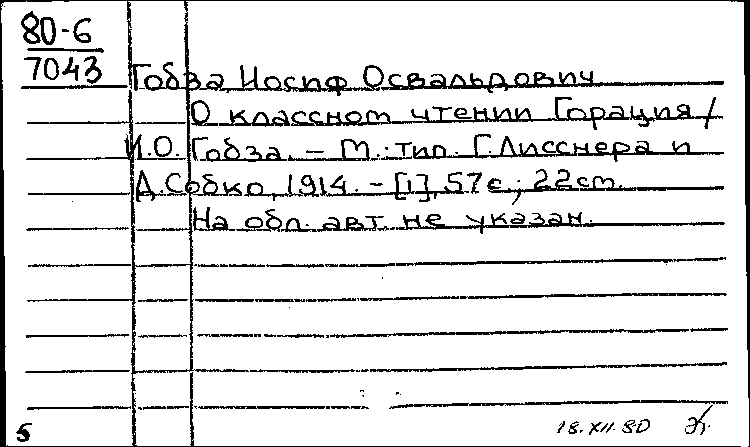 80-6
7043
Гобза, Иосиф Освальдович
О классном чтении Горация /
И.О. Гобза. – М.: тип. Г. Лисснера и
Д. Собко, 1914. – [1], 57 с.; 22 см.
На обл. авт. не указан.
5
18.XII.80